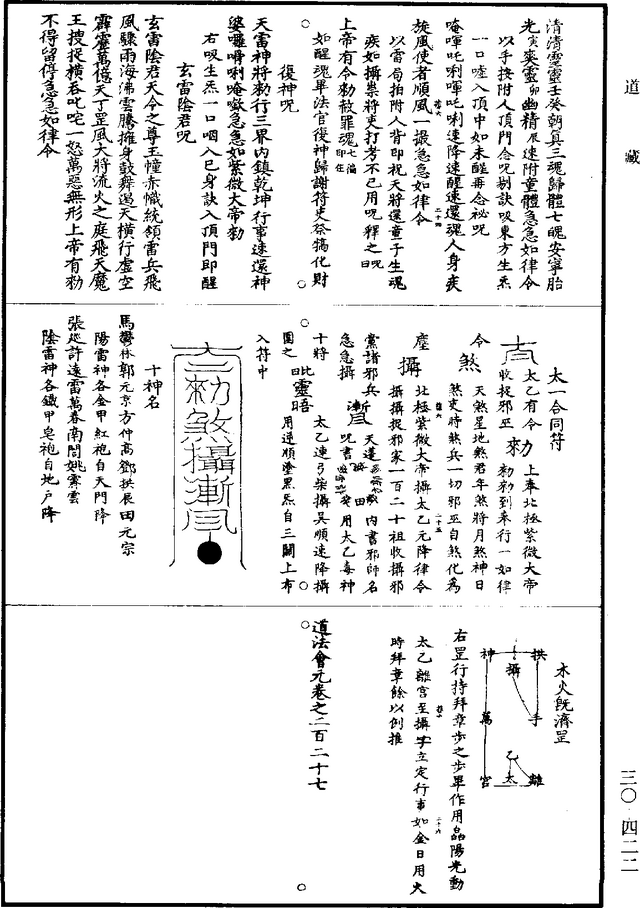 道藏
清清靈靈壬癸朝真三魂歸體七魄安寧胎
光爽靈卯幽精尽速附童體急急如律令
以手按附人頂門念呪剔訣吸東方生炁
一口噓入頂中如未醒再念祕呪
唵㖶吒唎㖶吒唎速降速醒速還魂人身疾
旋風使者順風一撮急急如律令
以雷局拍附人背即祝天將還童子生魂
疾如攝祟將吏打考不已用呪釋之呪曰
上帝有令勑赦罪魂七遍印在
如醒魂畢法官復神歸謝符吏祭犒化財
復神呪
天雷神將勑行三界内鎮乾坤行事速還神
婆囉㗭唎唵㘕急急如紫微大帝勑
右吸生炁一口嚥入已身訣入頂門即醒
玄雷陰君呪
玄雷陰君天令之尊玉幢赤幟統領雷兵飛
風驟雨海沸雲騰擁身鼓舞遏天橫行虛空
霹靂萬億天丁罡風大將流火之庭飛天魔
王搜捉橫吞叱咤一怒萬惡無形上帝有勑
不得留停急急如律令
太一合同符
太乙有令
收捉邪巫
勑
上奉北極紫微大帝
勑勑到奉行一如律
令
煞
天煞星地煞君年煞將月煞神日
煞吏時煞兵一切邪巫自煞化為
塵
攝
北極紫微大帝攝太乙元降律令
攝攝捉邪家一百二十祖收攝邪
黨諸邪兵
急急攝
内書邪師名
用太乙毒神
十將
太乙連弓柴攝吴順速降攝
圈之
靈
用逆順塗黑炁自三關上布
入符中
十神名
馬鬱林郭元京方仲高鄧拱辰田元宗
陽雷神各金甲紅袍自天門降
張廵許遠雷萬春南閭姚霽雲
陰雷神各鐵甲皂袍自地户降
木火既濟罡
拱
神
攝
手
萬
乙
太
離
宫
右罡行持拜章步之步畢作用晶陽光動
太乙離宫至攝字立定行事如金日用火
時拜章餘以例推
道法會元卷之二百二十七
三〇·四二二